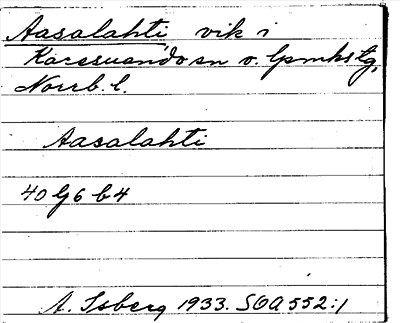 Aasalahti vik i
Karesuando sn o. lpmkslg,
Norrb. l.
Aasalahti
40 lg 6 b 4
A. Isberg 1933. SOA 552:1